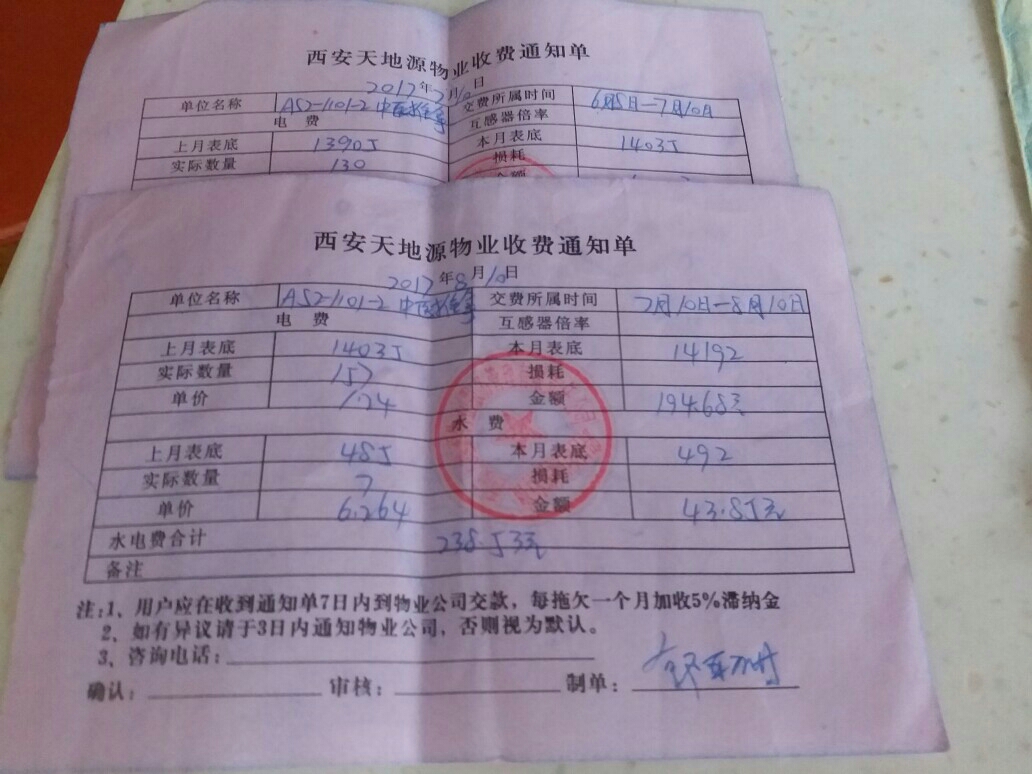 西安天地源物业收费通知单
2017年7月10日
单位名称 A52-1101-2 交费所属时间 6月5日—7月10日
电 费 互感器倍率
上月表底 13905 本月表底 14035
实际数量 130 损耗
金额
西安天地源物业收费通知单
2017年8月10日
单位名称 A52-1101-2 交费所属时间 7月10日—8月10日
电 费 互感器倍率
上月表底 14035 本月表底 14192
实际数量 157 损耗
单价 1.24 金额 194.68元
水 费
上月表底 485 本月表底 492
实际数量 7 损耗
单价 6.264 金额 43.85元
水电费合计 238.53元
备注
注:1、用户应在收到通知单7日内到物业公司交款，每拖欠一个月加收5%滞纳金
2、如有异议请于3日内通知物业公司，否则视为默认。
3、咨询电话:
确认: 审核: 制单: